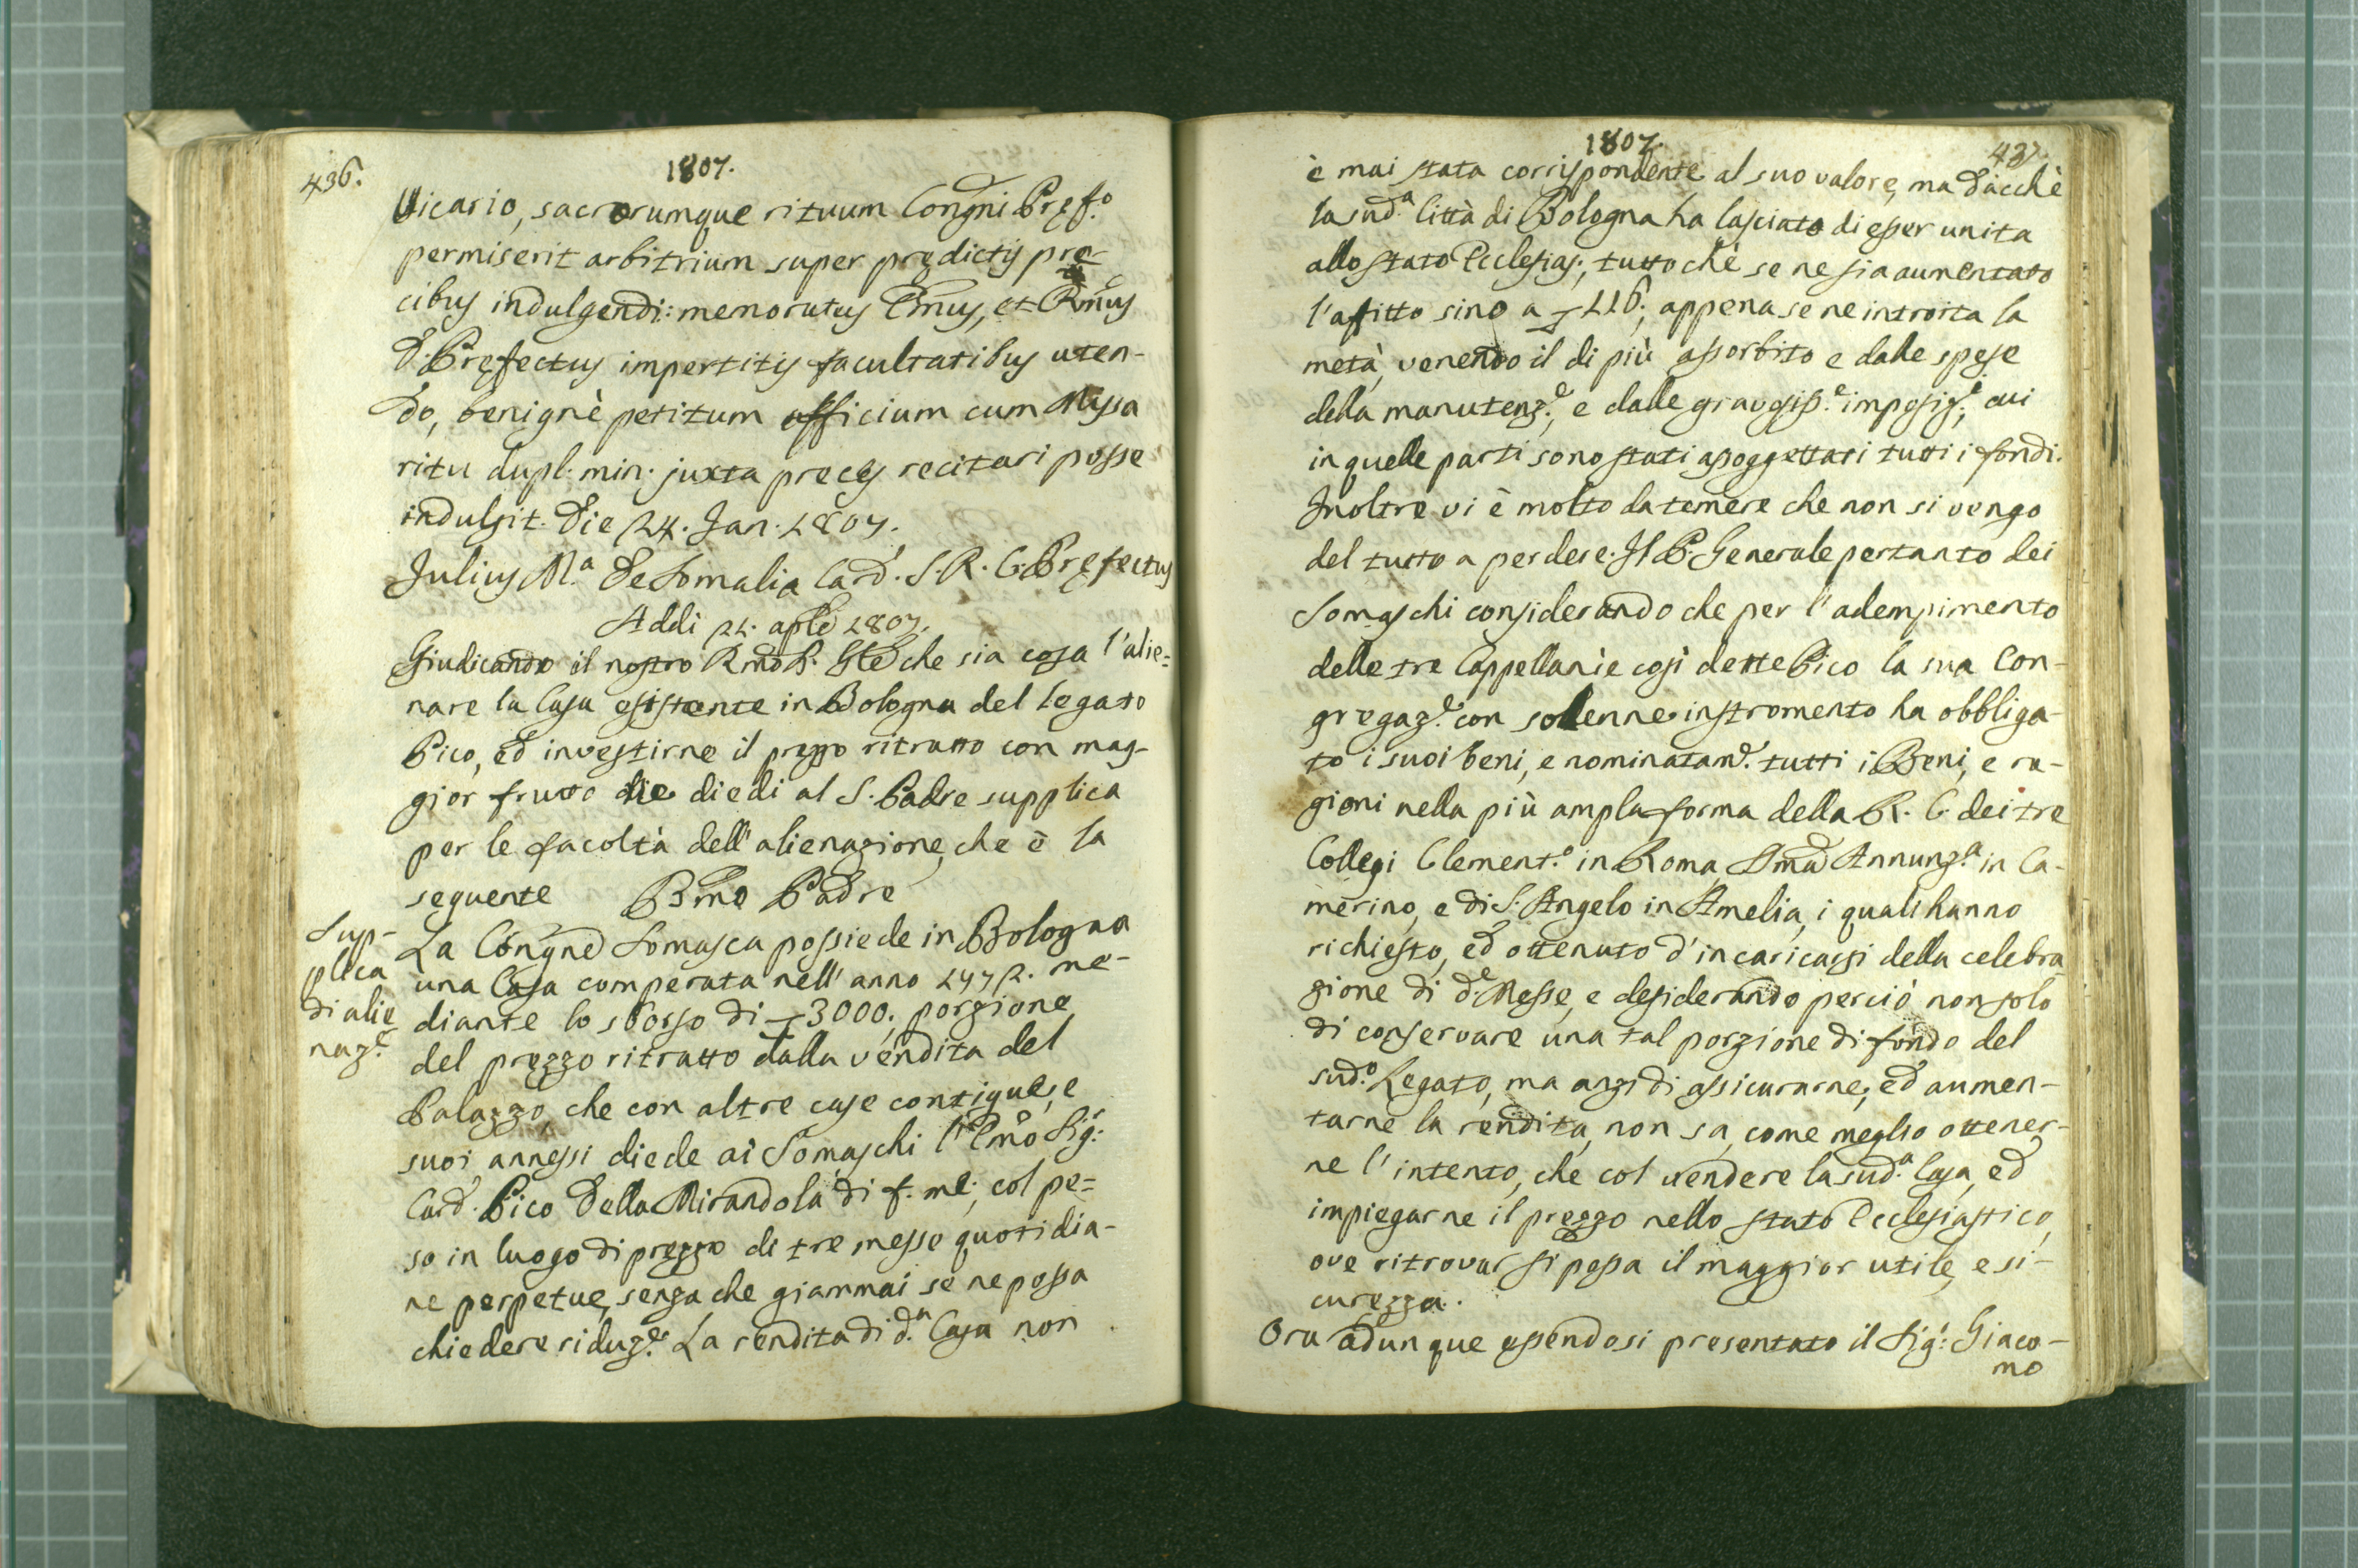 436.
1807.
Vicario, sacrorumque rituum Congñi Pręf.o
permiserit arbitrium super prędictis pre-
cibus indulgendi: memoratus Emus, et Rmus
D. Pręfectus impertitis facultatibus uten-
do, benignè petitum officium cum Missa
ritu dupl. min. juxta preces recitari posse
indulsit. Die 24. Jan. 1807.
Julius M.a De Somalia Card. S. R. C. Pręfectus
Addi 21. aple 1807.
Giudicando il nostro Rmo P. Gle che sia cosa l'alie=
nare la Casa esistente in Bologna del legato
Pico, ed investirne il prezzo ritratto con mag-
gior frutto die diedi al S. Padre supplica
per le facoltà dell'alienazione, che è la
seguente Bmo Padre
Sup-
plica
di alie
naz.e
La Congne Somasca possiede in Bologna
una Casa comperata nell'anno 1772. me-
diante lo sborso di 3000. porzione
del prezzo ritratto dalla vendita del
Palazzo, che con altre case contigue, e
suoi annessi diede ai Somaschi l'Emo Sig:
Card. Pico Della Mirandola di f. me: col pe=
so in luogo di prezzo di tre messe quotidia-
ne perpetue, senza che giammai se ne possa
chiedere riduz.e La rendita di d.a Casa non
1807.
437.
è mai stata corrispondente al suo valore, ma dacchè
la sud.a Città di Bologna ha lasciato di esser unita
allo Stato Ecclesias:, tuttochè se ne sia aumentato
l'affitto sino a 116., appena se ne introita la
metà, venendo il di più assorbito e dalle spese
della manutenz.e, e dalle gravosiss.e imposiz.e, cui
in quelle parti sono stati assoggettati tutti i fondi.
Inoltre vi è molto da temere che non si venga
del tutto a perdere. Il P. Generale pertanto dei
Somaschi considerando che per l'adempimento
delle tre Cappellanìe così dette Pico la sua Con-
gregaz.e con solenne instromento ha obbliga-
to i suoi beni, e nominatam.e tutti i Beni, e ra-
gioni nella più ampla forma della R. C. dei tre
Collegi Clement.o in Roma, Sma Annunz.a in Ca-
merino, e di S. Angelo in Amelia, i quali hanno
richiesto, ed ottenuto d'incaricarsi della celebra
zione di d.e Messe, e desiderando perciò non solo
di conservare una tal porzione di fondo del
sud.o Legato, ma anzi di assicurarne, ed aumen-
tarne la rendita, non sa, come meglio ottener-
ne l'intento, che col vendere la sud.a Casa, ed
impiegarne il prezzo nello stato Ecclesiastico,
ove ritrovar si possa il maggior utile, e si-
curezza.
Ora adunque essendosi presentato il Sig: Giaco-
mo